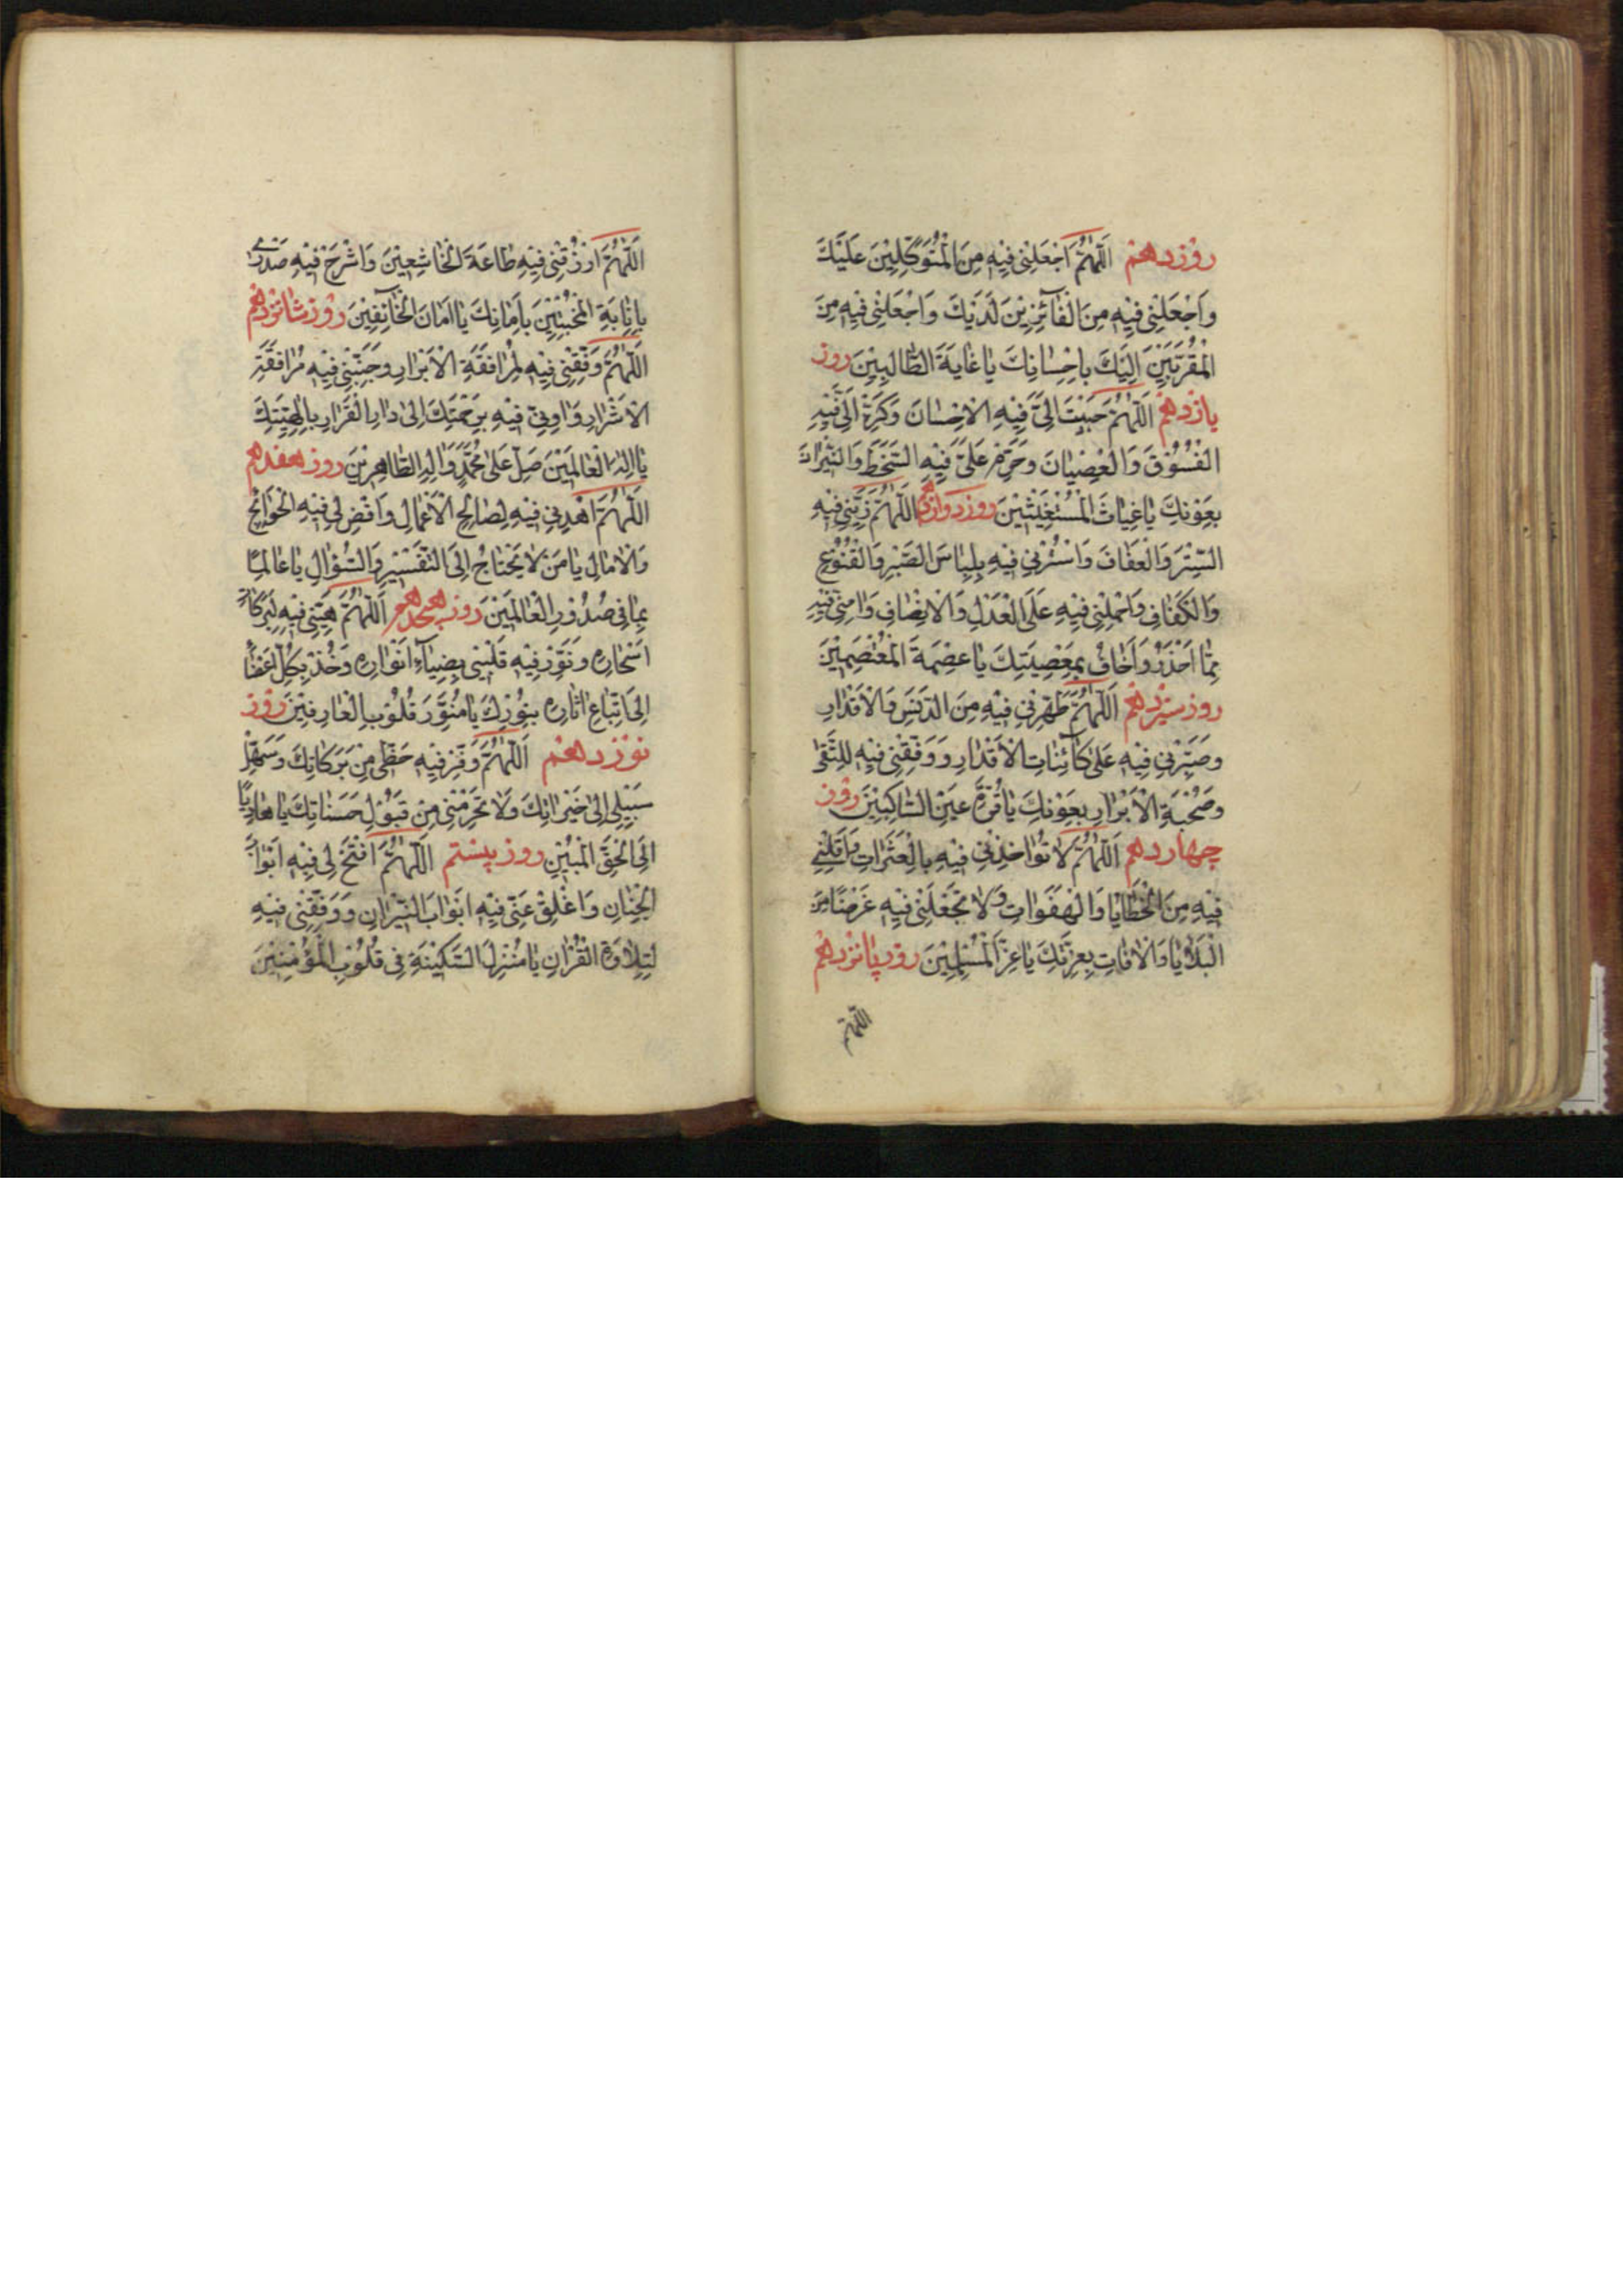 روز دهم اَللّٰهُمَّ اجْعَلْنِی فِیْهِ مِنَ الْمُتَوَكِّلِیْنَ عَلَیْكَ
وَاجْعَلْنِی فِیْهِ مِنَ الْفَآئِزِیْنَ لَدَیْكَ وَاجْعَلْنِی فِیْهِ مِنَ
الْمُقَرَّبِیْنَ اِلَیْكَ بِاِحْسٰانِكَ یٰا غٰایَةَ الطّٰالِبِیْنَ روز
یازدهم اَللّٰهُمَّ حَبِّبْ اِلَیَّ فِیْهِ الْاِحْسٰانَ وَكَرِّهْ اِلَیَّ فِیْهِ
الْفُسُوْقَ وَالْعِصْیٰانَ وَحَرِّمْ عَلَیَّ فِیْهِ السَّخَطَ وَالنِّیْرٰانَ
بِعَوْنِكَ یٰا غِیٰاثَ الْمُسْتَغِیْثِیْنَ روز دوازدهم اَللّٰهُمَّ زَیِّنِّی فِیْهِ
السِّتْرَ وَالْعَفٰافَ وَاسْتُرْنِی فِیْهِ بِلِبٰاسِ الصَّبْرِ وَالْقُنُوْعِ
وَالْكَفٰافِ وَاحْمِلْنِی فِیْهِ عَلَی الْعَدْلِ وَالْاِنْصٰافِ وَاٰمِنِّی فِیْهِ
مِمّٰا اَحْذَرُ وَاَخٰافُ بِمَعْصِیَتِكَ یٰا عِصْمَةَ الْمُعْتَصِمِیْنَ
روز سیزدهم اَللّٰهُمَّ طَهِّرْنِی فِیْهِ مِنَ الدَّنَسِ وَالْاَقْذٰارِ
وَصَبِّرْنِی فِیْهِ عَلیٰ كٰآئِنٰاتِ الْاَقْدٰارِ وَوَفِّقْنِی فِیْهِ لِلتُّقیٰ
وَصُحْبَةِ الْاَبْرٰارِ بِعَوْنِكَ یٰا قُرَّةَ عَیْنِ الْمَسٰاكِیْنَ روز
چهاردهم اَللّٰهُمَّ لٰا تُؤٰاخِذْنِی فِیْهِ بِالْعَثَرٰاتِ وَاَقِلْنِی
فِیْهِ مِنَ الْخَطٰایٰا وَالْهَفَوٰاتِ وَلٰا تَجْعَلْنِی فِیْهِ غَرَضًا مِنَ
الْبَلٰایٰا وَالْاٰفٰاتِ بِعِزَّتِكَ یٰا عِزَّ الْمُسْلِمِیْنَ روز پانزدهم
اللّٰهمّ
اَللّٰهُمَّ ارْزُقْنِی فِیْهِ طٰاعَةَ الْخٰاشِعِیْنَ وَاشْرَحْ فِیْهِ صَدْرِی
بِاِنٰابَةِ الْمُخْبِتِیْنَ بِاَمٰانِكَ یٰا اَمٰانَ الْخٰآئِفِیْنَ روز شانزدهم
اَللّٰهُمَّ وَفِّقْنِی فِیْهِ لِمُرٰافَقَةِ الْاَبْرٰارِ وَجَنِّبْنِی فِیْهِ مُرٰافَقَةِ
الْاَشْرٰارِ وَاٰوِنِی فِیْهِ بِرَحْمَتِكَ اِلیٰ دٰارِ الْقَرٰارِ بِاِلٰهِیَّتِكَ
یٰا اِلٰهَ الْعٰالَمِیْنَ صَلِّ عَلیٰ مُحَمَّدٍ وَاٰلِهِ الطّٰاهِرِیْنَ روز هفدهم
اَللّٰهُمَّ اهْدِنِی فِیْهِ لِصٰالِحِ الْاَعْمٰالِ وَاقْضِ لِی فِیْهِ الْحَوٰآئِجَ
وَالْاٰمٰالِ یٰا مَنْ لٰا یَحْتٰاجُ اِلَی التَّفْسِیْرِ وَالسُّؤٰالِ یٰا عٰالِمًا
بِمٰا فِی صُدُوْرِ الْعٰالَمِیْنَ روز هجدهم اَللّٰهُمَّ نَبِّهْنِی فِیْهِ لِبَرَكٰاتِ
اَسْحٰارِهِ وَنَوِّرْ فِیْهِ قَلْبِی بِضِیٰآءِ اَنْوٰارِهِ وَخُذْ بِكُلِّ اَعْضٰآئِی
اِلَی اتِّبٰاعِ اٰثٰارِهِ بِنُوْرِكَ یٰا مُنَوِّرَ قُلُوْبِ الْعٰارِفِیْنَ روز
نوزدهم اَللّٰهُمَّ وَفِّرْ فِیْهِ حَظِّی مِنْ بَرَكٰاتِكَ وَسَهِّلْ
سَبِیْلِی اِلیٰ خَیْرٰاتِكَ وَلٰا تَحْرِمْنِی مِنْ قَبُوْلِ حَسَنٰاتِكَ یٰا هٰادِیًا
اِلَی الْحَقِّ الْمُبِیْنِ روز بیستم اَللّٰهُمَّ افْتَحْ لِی فِیْهِ اَبْوٰابَ
الْجِنٰانِ وَاَغْلِقْ عَنِّی فِیْهِ اَبْوٰابَ النِّیْرٰانِ وَوَفِّقْنِی فِیْهِ
لِتِلٰاوَةِ الْقُرْاٰنِ یٰا مُنْزِلَ السَّكِیْنَةِ فِی قُلُوْبِ الْمُؤْمِنِیْنَ